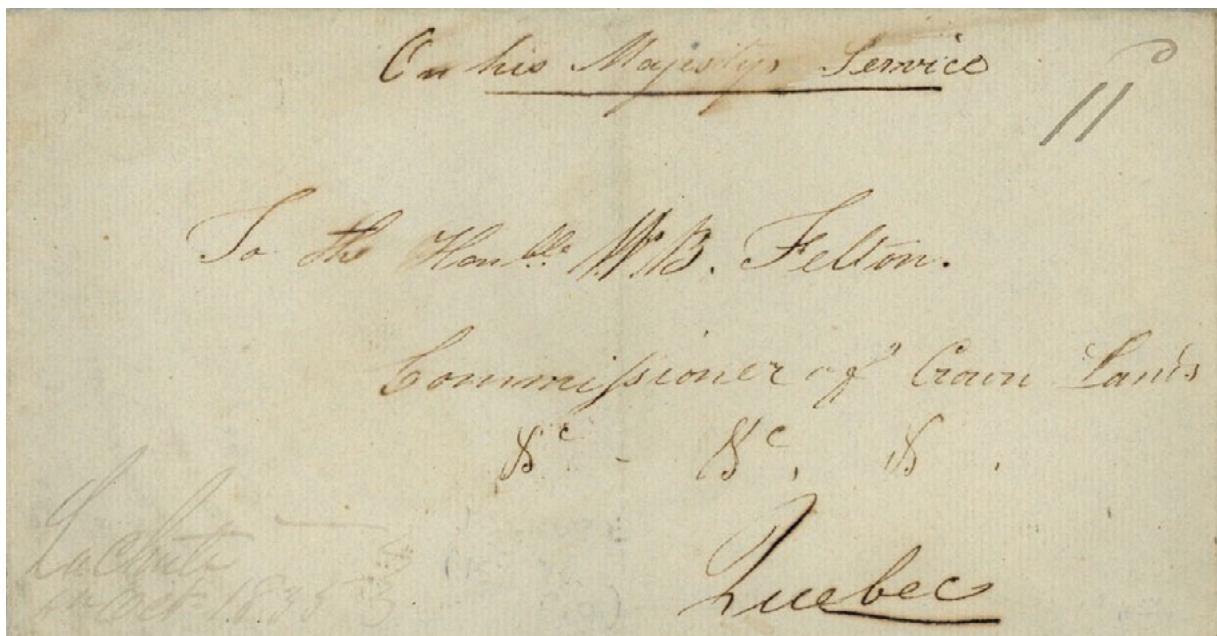 On his Majestys Service
11
To the Honble W. B. Felton.
Commissioner of Crown Lands
&c - &c, & .
Quebec
Lachute
Oct 1835